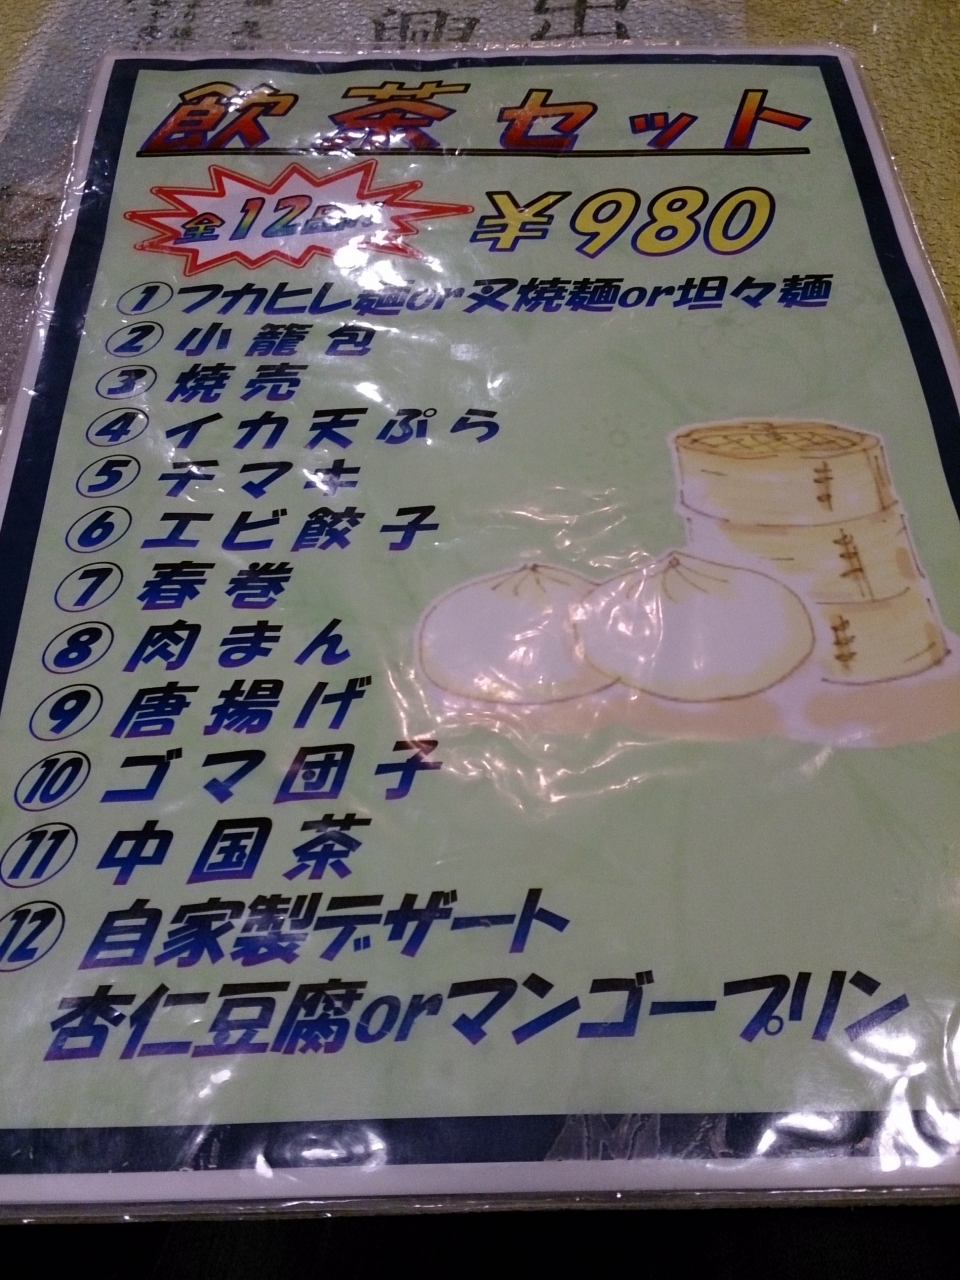 飲茶セット
全12品
¥980
①フカヒレ麺or叉焼麺or坦々麺
②小籠包
③焼売
④イカ天ぷら
⑤チマキ
⑥エビ餃子
⑦春巻
⑧肉まん
⑨唐揚げ
⑩ゴマ団子
⑪中国茶
⑫自家製デザート
杏仁豆腐orマンゴープリン